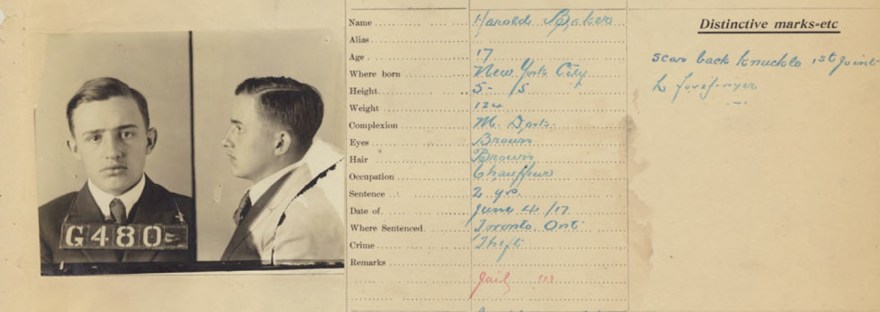 G480
Name Harold Baker
Alias
Age 17
Where born New York City
Height 5-
Weight
Complexion M. Dark
Eyes Brown
Hair Brown
Occupation Chauffeur
Sentence 2 yrs
Date of June 4/17
Where Sentenced Toronto Ont
Crime Theft
Remarks
Distinctive marks-etc
scar back knuckle 1st joint
L forefinger